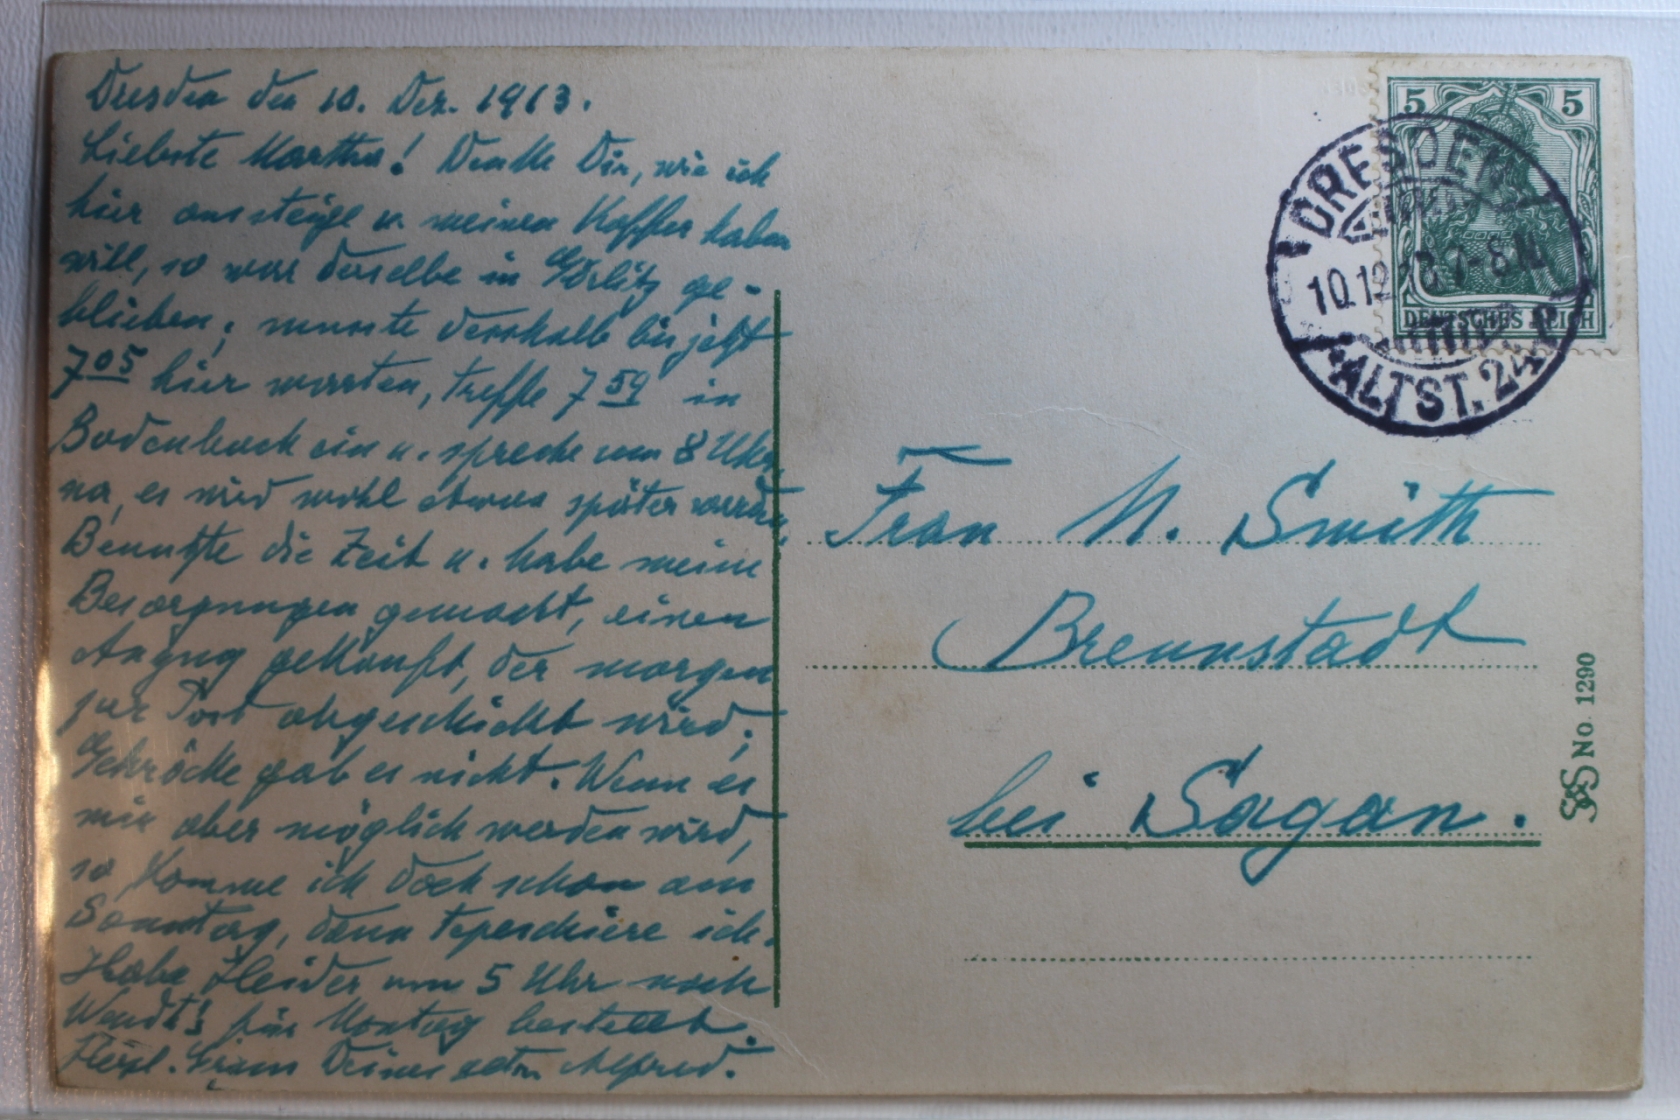 Dresden den 10. Dez. 1913.
Liebste Martha! Denke Dir, wie ich
hier aussteige u. meinen Koffer haben
will, so war derselbe in Görlitz ge-
blieben; musste desshalb bis jetzt
7 05 hier warten, treffe 7 59 in
Bodenbach ein u. spreche um 8 Uhr,
na, es wird wohl etwas später werden.
Benutzte die Zeit u. habe meine
Besorgungen gemacht, einen
Anzug gekauft, der morgen
zur Post abgeschickt wird;
Gehröcke gab es nicht. Wenn es
mir aber möglich werden wird,
so komme ich doch schon am
Sonntag, dann depeschiere ich.
Habe um 5 Uhr nach
für Montag bestellt.
Herzl. Gruss Deines Alfred.
5 5
DEUTSCHES REICH
DRESDEN
10.12.13. 7-8 N
ALTST. 24
Frau M. Smith
Brennstadt
bei Sagan.
S&S No. 1290